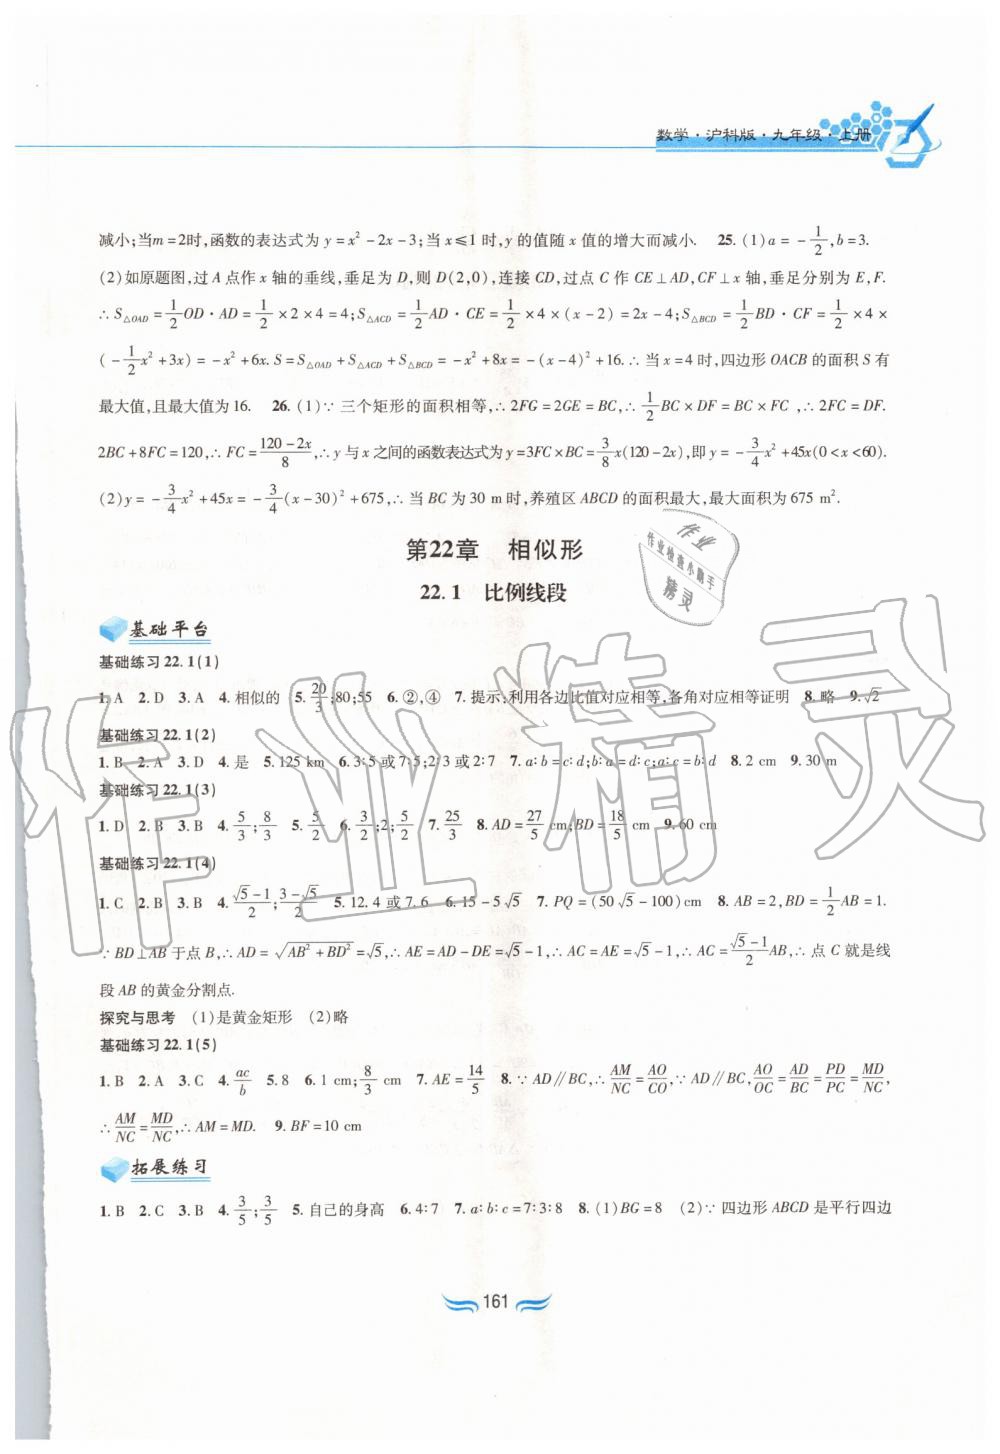 数学·沪科版·九年级·上册
减小;当m=2时,函数的表达式为 y=x²-2x-3;当 x⩽1 时,y 的值随 x 值的增大而减小. 25. (1)a=-1/2,b=3.
(2)如原题图,过 A 点作 x 轴的垂线,垂足为 D,则 D(2,0),连接 CD,过点 C 作 CE⊥AD,CF⊥x 轴,垂足分别为 E,F.
∴S△OAD=1/2OD·AD=1/2×2×4=4;S△ACD=1/2AD·CE=1/2×4×(x-2)=2x-4;S△BCD=1/2BD·CF=1/2×4×
(-1/2x²+3x)=-x²+6x. S=S△OAD+S△ACD+S△BCD=-x²+8x=-(x-4)²+16.∴当 x=4 时,四边形 OACB 的面积 S 有
最大值,且最大值为 16. 26. (1)∵三个矩形的面积相等,∴2FG=2GE=BC,∴1/2BC×DF=BC×FC ,∴2FC=DF.
2BC+8FC=120,∴FC=(120-2x)/8,∴y 与 x 之间的函数表达式为 y=3FC×BC=3/8x(120-2x),即 y=-3/4x²+45x(0<x<60).
(2)y=-3/4x²+45x=-3/4(x-30)²+675,∴当 BC 为 30 m 时,养殖区 ABCD 的面积最大,最大面积为 675 m².
第22章 相似形
22.1 比例线段
基础平台
基础练习 22.1(1)
1. A 2. D 3. A 4. 相似的 5. 20/3;80;55 6. ②,④ 7. 提示:利用各边比值对应相等,各角对应相等证明 8. 略 9. √2
基础练习 22.1(2)
1. B 2. A 3. D 4. 是 5. 125 km 6. 3∶5 或 7∶5;2∶3 或 2∶7 7. a∶b=c∶d;b∶a=d∶c;a∶c=b∶d 8. 2 cm 9. 30 m
基础练习 22.1(3)
1. D 2. B 3. B 4. 5/3;8/3 5. 5/2 6. 3/2;2;5/2 7. 25/3 8. AD=27/5 cm;BD=18/5 cm 9. 60 cm
基础练习 22.1(4)
1. C 2. B 3. B 4. (√5-1)/2;(3-√5)/2 5. 12.4 或 7.6 6. 15-5√5 7. PQ=(50√5-100)cm 8. AB=2,BD=1/2AB=1.
∵BD⊥AB 于点 B,∴AD=√(AB²+BD²)=√5,∴AE=AD-DE=√5-1,∴AC=AE=√5-1,∴AC=(√5-1)/2AB,∴点 C 就是线
段 AB 的黄金分割点.
探究与思考 (1)是黄金矩形 (2)略
基础练习 22.1(5)
1. B 2. A 3. C 4. ac/b 5. 8 6. 1 cm;8/3 cm 7. AE=14/5 8. ∵AD∥BC,∴AM/NC=AO/CO,∵AD∥BC,AO/OC=AD/BC=PD/PC=MD/NC,
∴AM/NC=MD/NC,∴AM=MD. 9. BF=10 cm
拓展练习
1. B 2. C 3. B 4. 3/5;3/5 5. 自己的身高 6. 4∶7 7. a∶b∶c=7∶3∶8 8. (1)BG=8 (2)∵四边形 ABCD 是平行四边
161
作业
作业检查小助手
精灵
作业精灵